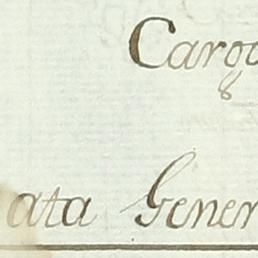 Cargo
ata Gener